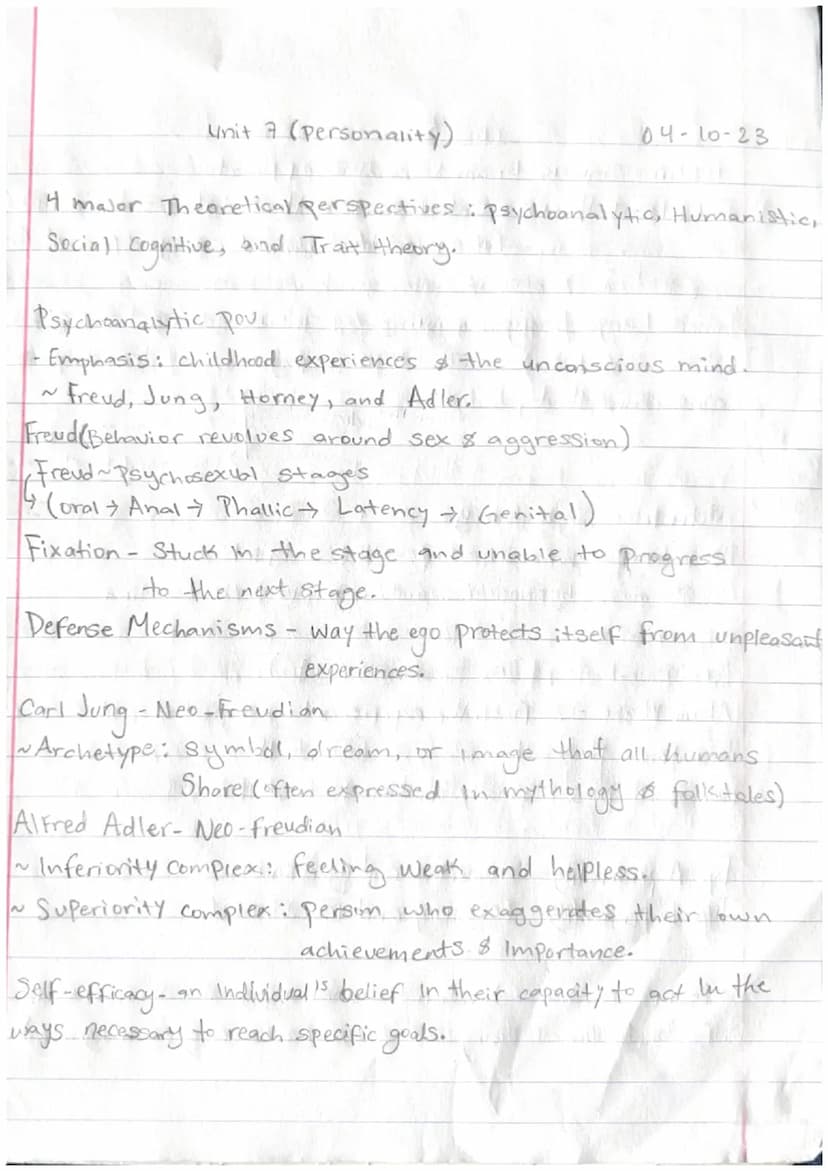 Unit 7 (Personality) 04-10-23
4 major Theoretical Perspectives : Psychoanalytic, Humanistic,
Social Cognitive, and Trait theory.
Psychoanalytic POV
- Emphasis : childhood experiences & the unconscious mind.
~ Freud, Jung, Horney, and Adler.
Freud (Behavior revolves around sex & aggression)
Freud ~ Psychosexual stages
↳ (oral → Anal → Phallic → Latency → Genital)
Fixation - Stuck in the stage and unable to progress
to the next stage.
Defense Mechanisms - way the ego protects itself from unpleasant
experiences.
Carl Jung - Neo-Freudian
~ Archetype : symbol, dream, or image that all humans
Share (often expressed in mythology & folkstales)
Alfred Adler - Neo-freudian
~ Inferiority complex : feeling weak and helpless.
~ Superiority complex : person who exaggerates their own
achievements & Importance.
Self-efficacy - an Individual's belief in their capacity to act in the
ways necessary to reach specific goals.